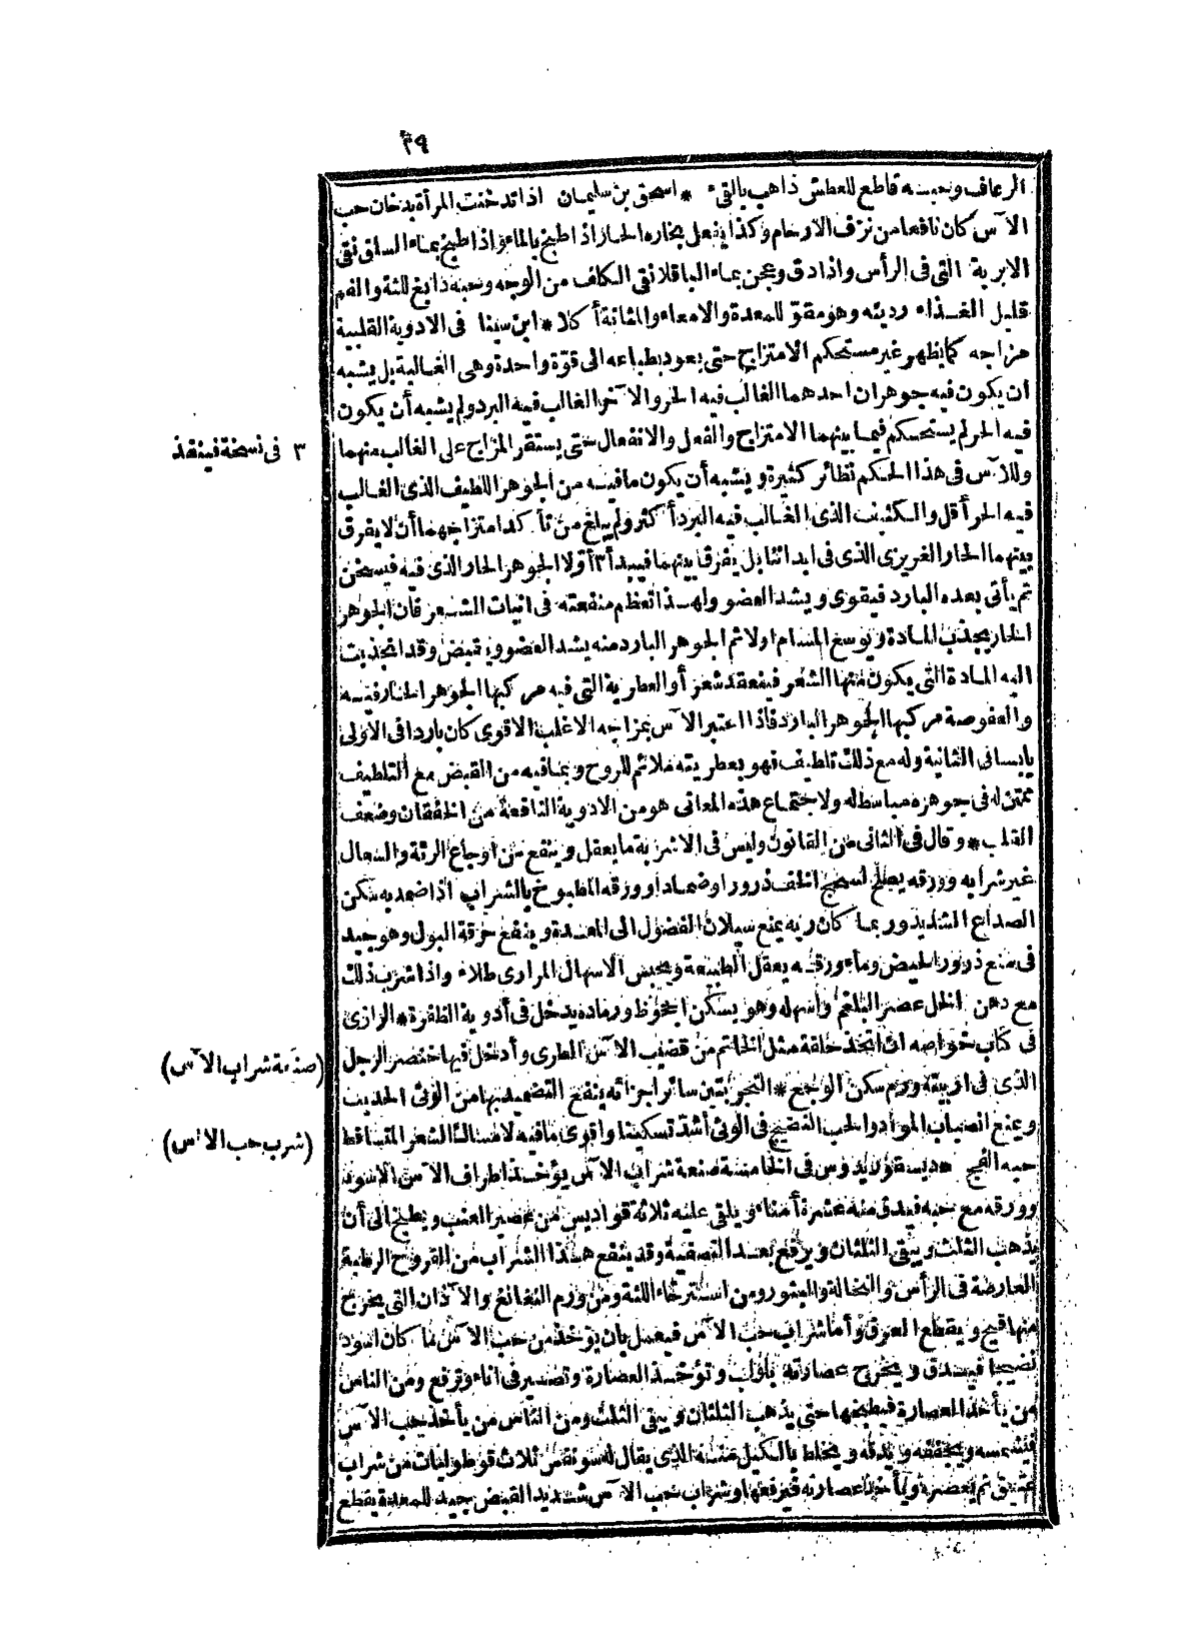 ٢٩
الرعاف وحبسه قاطع للعطش ذاهب بالقىء * اسحق بن سليمان اذا تدخنت المرأة بدخان حب
الآس كان نافعا من نزف الارحام وكذا يفعل بخاره الحار اذا طبخ بالماء واذا طبخ بماء السلق نقى
الابرية التى فى الرأس واذا دق وعجن بماء الباقلا نقى الكلف من الوجه وحبه دابغ للثة والفم
قليل الغذاء رديئه وهو مقو للمعدة والامعاء والمثانة أكلا * ابن سينا فى الادوية القلبية
مزاجه كما يظهر غير مستحكم الامتزاج حتى يعود بطباعه الى قوة واحدة وهى الغالبة بل يشبه
ان يكون فيه جوهران احدهما الغالب فيه الحر والآخر الغالب فيه البرد ولم يشبه أن يكون
فيه الحر لم يستحكم فيما بينهما الامتزاج والفعل والانفعال حتى يستقر المزاج على الغالب منهما
٣ فى نسخة فينفذ
وللآس فى هذا الحكم نظائر كثيرة ويشبه أن يكون ما فيه من الجوهر اللطيف الذى الغالب
فيه الحر أقل والكثيف الذى الغالب فيه البرد أكثر ولم يبلغ من تأكد امتزاجهما أن لا يفرق
بينهما الحار الغريزى الذى فى ابداننا بل يفرق بينهما فيبدأ ٣ أولا الجوهر الحار الذى فيه فيسخن
ثم يأتى بعده البارد فيقوى ويشد العضو ولهذا تعظم منفعته فى انبات الشعر فان الجوهر
الحار يجذب المادة ويوسع المسام اولا ثم الجوهر البارد منه يشد العضو ويقبض وقد انجذبت
اليه المادة التى يكون منها الشعر فينعقد شعرا والعطرية التى فيه مركبها الجوهر الحار فيه
والعفوصة مركبها الجوهر البارد فاذا اعتبر الآس بمزاجه الاغلب الاقوى كان باردا فى الاولى
يابسا فى الثانية وله مع ذلك تلطيف فهو بعطريته ملائم للروح وبما فيه من القبض مع التلطيف
ممتن له فى جوهره مباسط له ولاجتماع هذه المعانى هو من الادوية النافعة من الخفقان وضعف
القلب * وقال فى الثانى من القانون وليس فى الاشربة ما يعقل وينفع من اوجاع الرئة والسعال
غير شرابه وورقه يصلح لسحج الخف ذرورا وضمادا وورقه المطبوخ بالشراب اذا ضمد به سكن
الصداع الشديد وربما كان ربه يمنع سيلان الفضول الى المعدة وينفع حرقة البول وهو جيد
فى منع درور الحيض وماء ورقه يعقل الطبيعة ويحبس الاسهال المرارى طلاء واذا شرب ذلك
مع دهن الخل عصر البلغم وأسهله وهو يسكن الجحوظ ورماده يدخل فى أدوية الظفرة * الرازى
فى كتاب خواصه ان اتخذ حلقة مثل الخاتم من قضيب الآس الطرى وأدخل فيها خنصر الرجل
(صنعة شراب الآس)
الذى فى اربيته ورم سكن الوجع * التجربتين سائر اجزائه ينفع التضميد بها من الوثى الحديث
ويمنع انصباب المواد والحب النضيج فى الوثى أشد تسكينا واقوى ما فيه لامساك الشعر المتساقط
(شرب حب الآس)
حبه الفج * ديسقوريدوس فى الخامسة صنعة شراب الآس يؤخذ اطراف الآس الاسود
وورقه مع حبه فيدق منه عشرة أمناء ويلقى عليه ثلاثة قواديس من عصير العنب ويطبخ الى أن
يذهب الثلث ويبقى الثلثان ويرفع بعد التصفية وقد ينفع هذا الشراب من القروح الرطبة
العارضة فى الرأس والنخالة والبثور ومن استرخاء اللثة ومن ورم النغانغ والآذان التى يخرج
منها قيح ويقطع العرق وأما شراب حب الآس فيعمل بان يؤخذ من حب الآس ما كان اسود
نضيجا فيدق ويخرج عصارته بلولب وتؤخذ العصارة وتصير فى اناء وترفع ومن الناس
من يأخذ العصارة فيطبخها حتى يذهب الثلثان ويبقى الثلث ومن الناس من يأخذ حب الآس
فيشمسه ويجففه ويدقه ويخلط بالكيل منه الذى يقال له سونقس ثلاث قوطوليات من شراب
عتيق ثم يعصره ويأخذ عصارته فيرفعها وشراب حب الآس شديد القبض جيد للمعدة يقطع